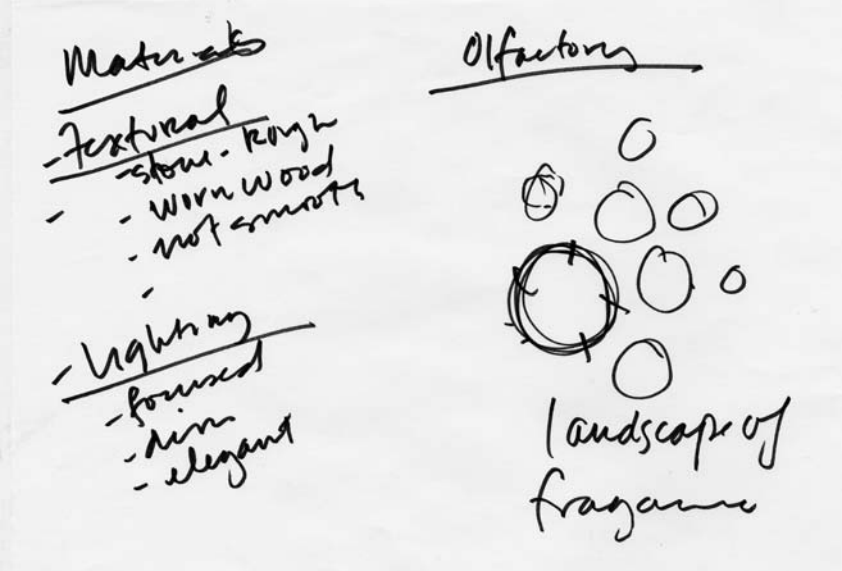 Materials
- Textural
- stone - Rough
- - worn wood
- not smooth
-
- Lighting
- focused
- dim
- elegant
Olfactory
landscape of
fragance